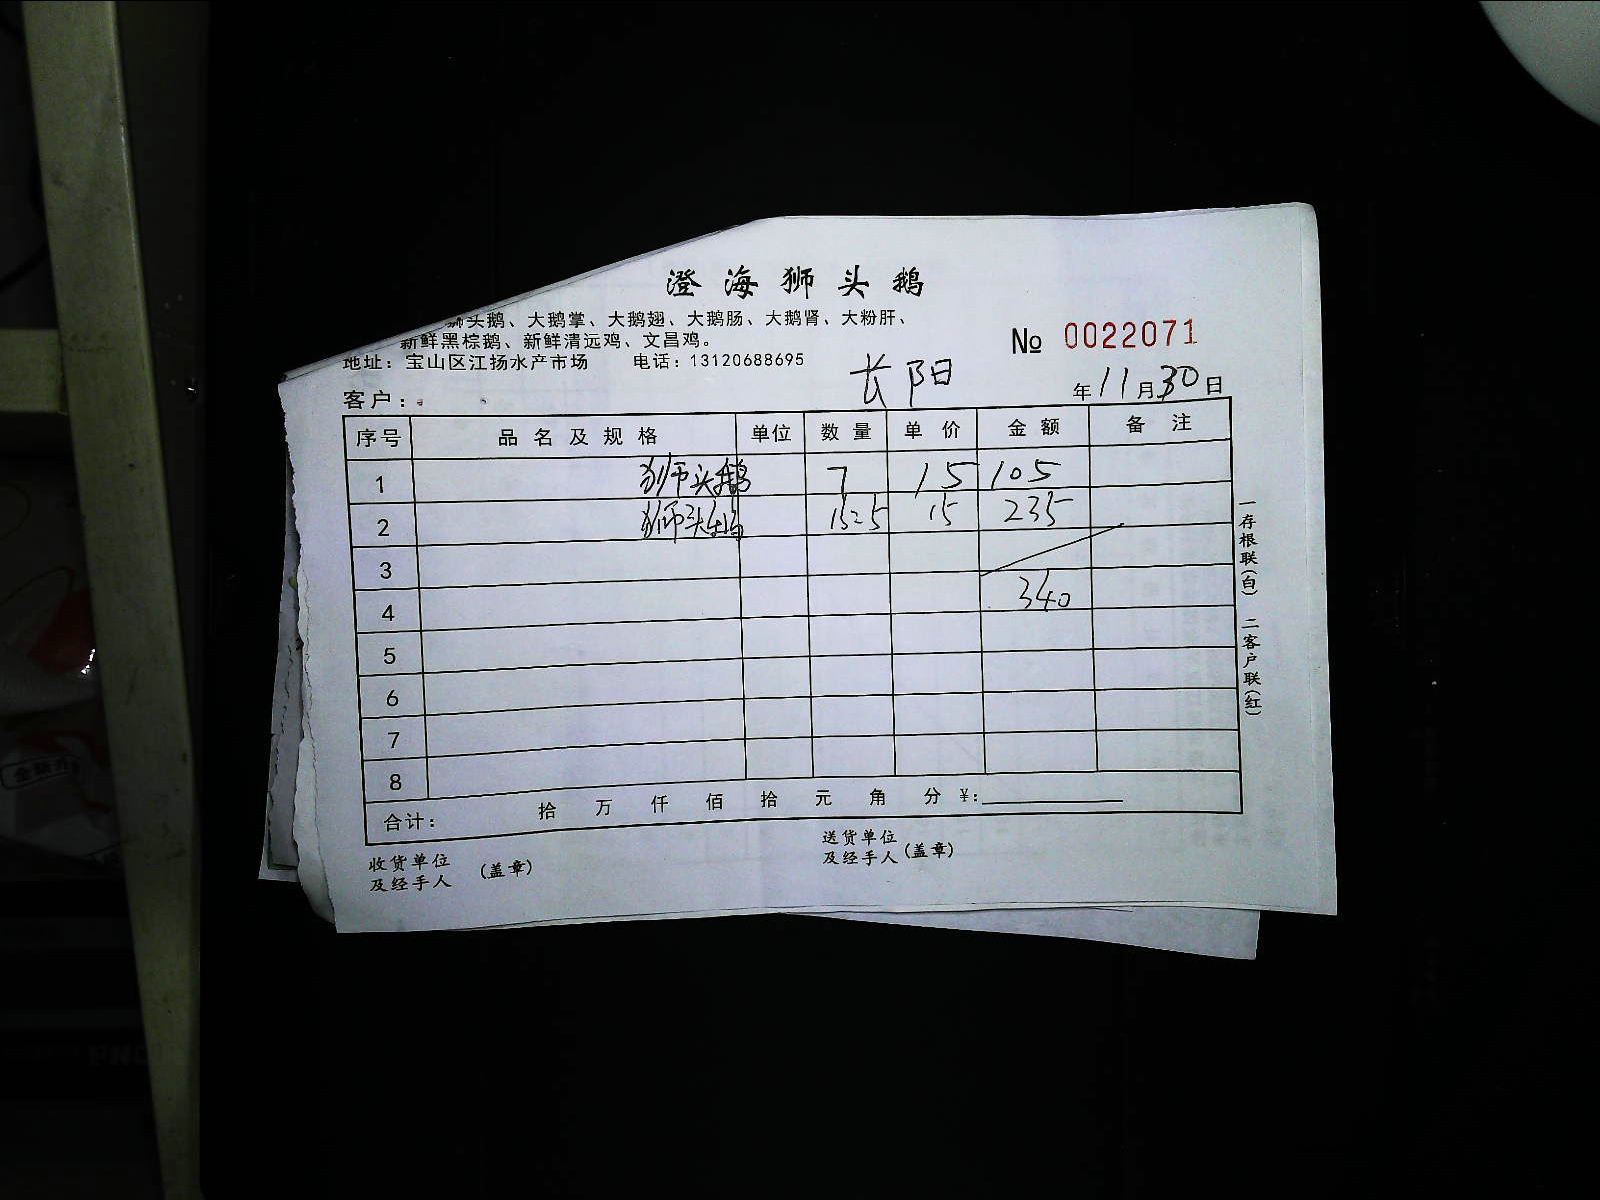 澄海狮头鹅
狮头鹅、大鹅掌、大鹅翅、大鹅肠、大鹅肾、大粉肝、
新鲜黑棕鹅、新鲜清远鸡、文昌鸡。
№ 0022071
地址：宝山区江扬水产市场 电话：13120688695
长阳
客户： 年11月30日
序号 品名及规格 单位 数量 单价 金额 备注
1 狮头鹅 7 15 105
2 狮头鹅 15 235
3
4 340
5
6
7
8
合计： 拾 万 仟 佰 拾 元 角 分 ¥:
收货单位
及经手人 (盖章)
送货单位
及经手人 (盖章)
一存根联(白) 二客户联(红)